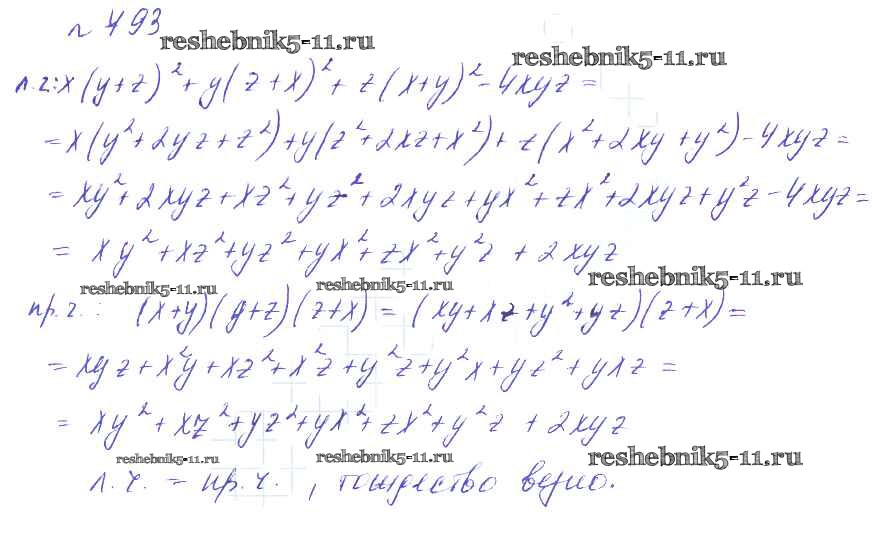 № 493
reshebnik5-11.ru
reshebnik5-11.ru
л.ч: x(y+z)²+y(z+x)²+z(x+y)²-4xyz=
=x(y²+2yz+z²)+y(z²+2xz+x²)+z(x²+2xy+y²)-4xyz=
=xy²+2xyz+xz²+yz²+2xyz+yx²+zx²+2xyz+y²z-4xyz=
= xy²+xz²+yz²+yx²+zx²+y²z+2xyz
reshebnik5-11.ru
reshebnik5-11.ru
reshebnik5-11.ru
пр.ч.: (x+y)(y+z)(z+x)=(xy+xz+y²+yz)(z+x)=
=xyz+x²y+xz²+x²z+y²z+y²x+yz²+yxz=
= xy²+xz²+yz²+yx²+zx²+y²z+2xyz
reshebnik5-11.ru
reshebnik5-11.ru
reshebnik5-11.ru
л.ч. = пр.ч., тождество верно.